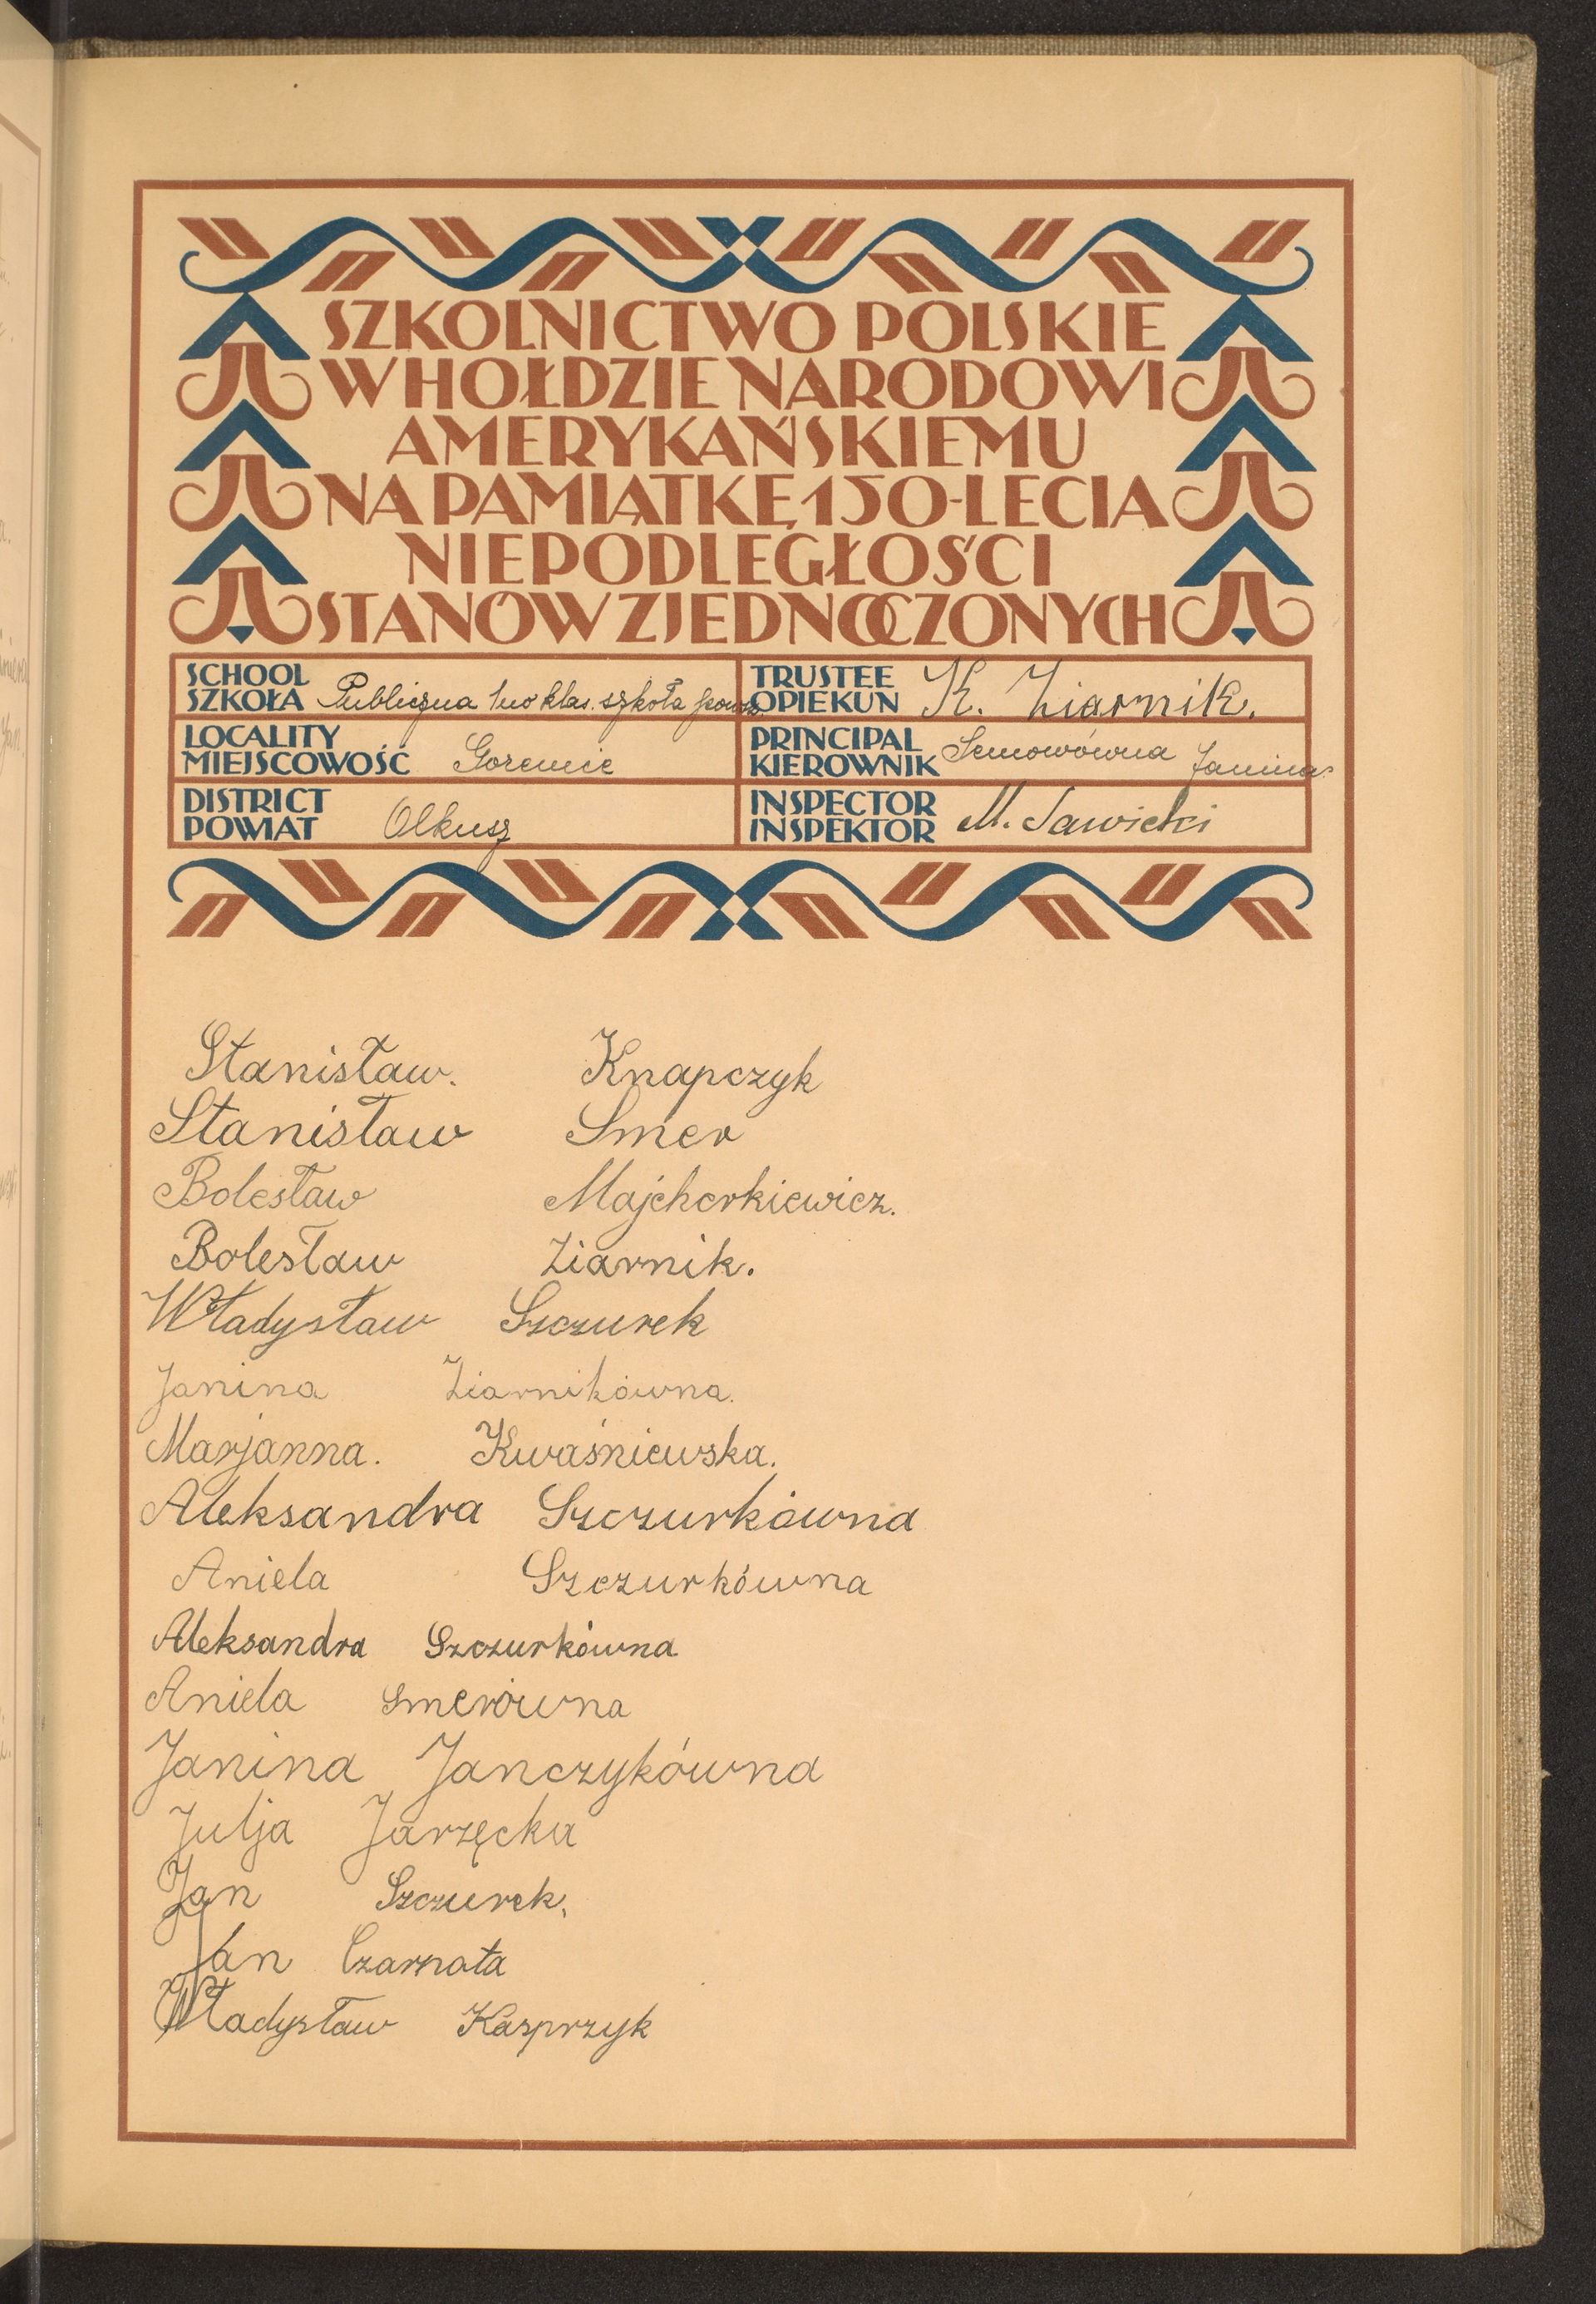 SZKOLNICTWO POLSKIE
W HOŁDZIE NARODOWI
AMERYKAŃSKIEMU
NA PAMIĄTKĘ 150-LECIA
NIEPODLEGŁOŚCI
STANÓW ZJEDNOCZONYCH
SCHOOL
SZKOŁA Publiczna 1no klas. szkoła powsz.
TRUSTEE
OPIEKUN K. Ziarnik.
LOCALITY
MIEJSCOWOŚĆ Gorenice
PRINCIPAL
KIEROWNIK Janina
DISTRICT
POWIAT Olkusz
INSPECTOR
INSPEKTOR M. Sawicki
Stanisław. Knapczyk
Stanisław Smer
Bolesław Majcherkiewicz.
Bolesław Ziarnik.
Władysław Szczurek
Janina Ziarnikówna.
Marjanna. Kwaśniewska.
Aleksandra Szczurkówna
Aniela Szczurkówna
Aleksandra Szczurkówna
Aniela Smerówna
Janina Janczykówna
Julja Jarzęcka
Jan Szczurek.
Jan Czarnota
Władysław Kasprzyk